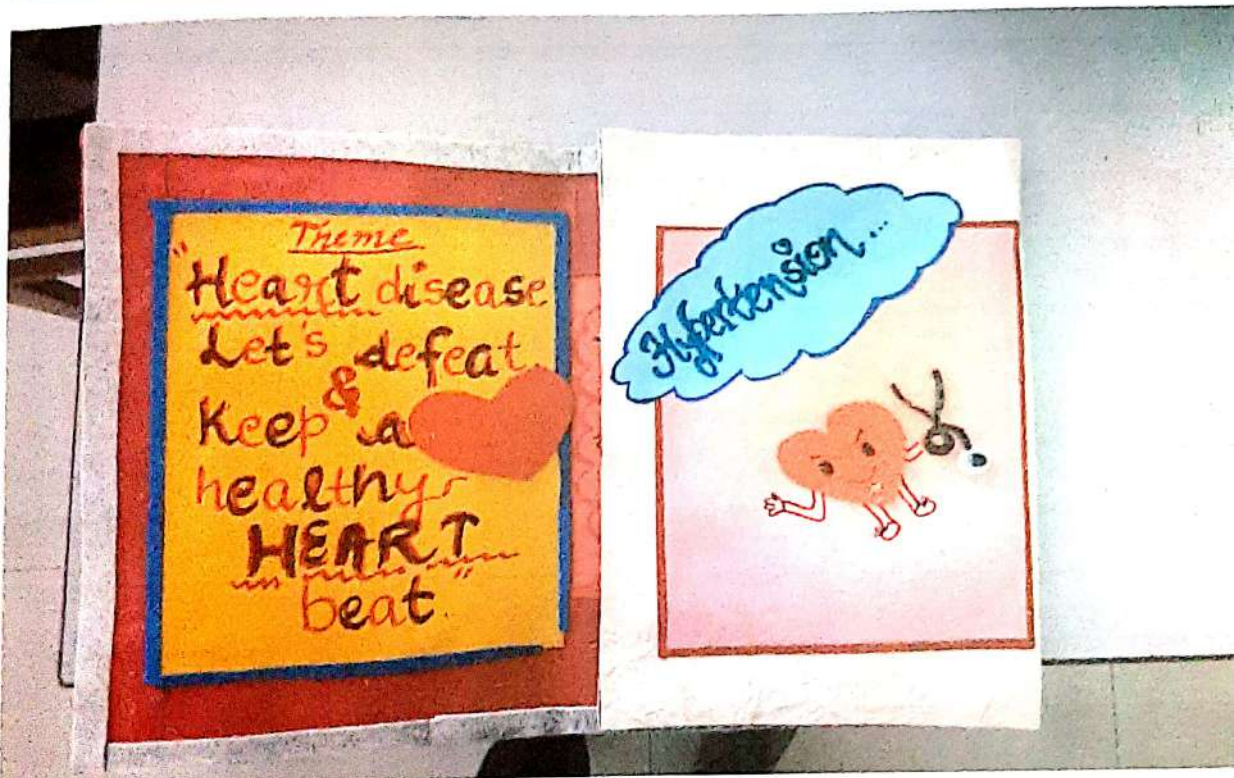 Theme
"Heart disease
Let's defeat
&
Keep a
healthy
HEART
beat"
Hypertension...